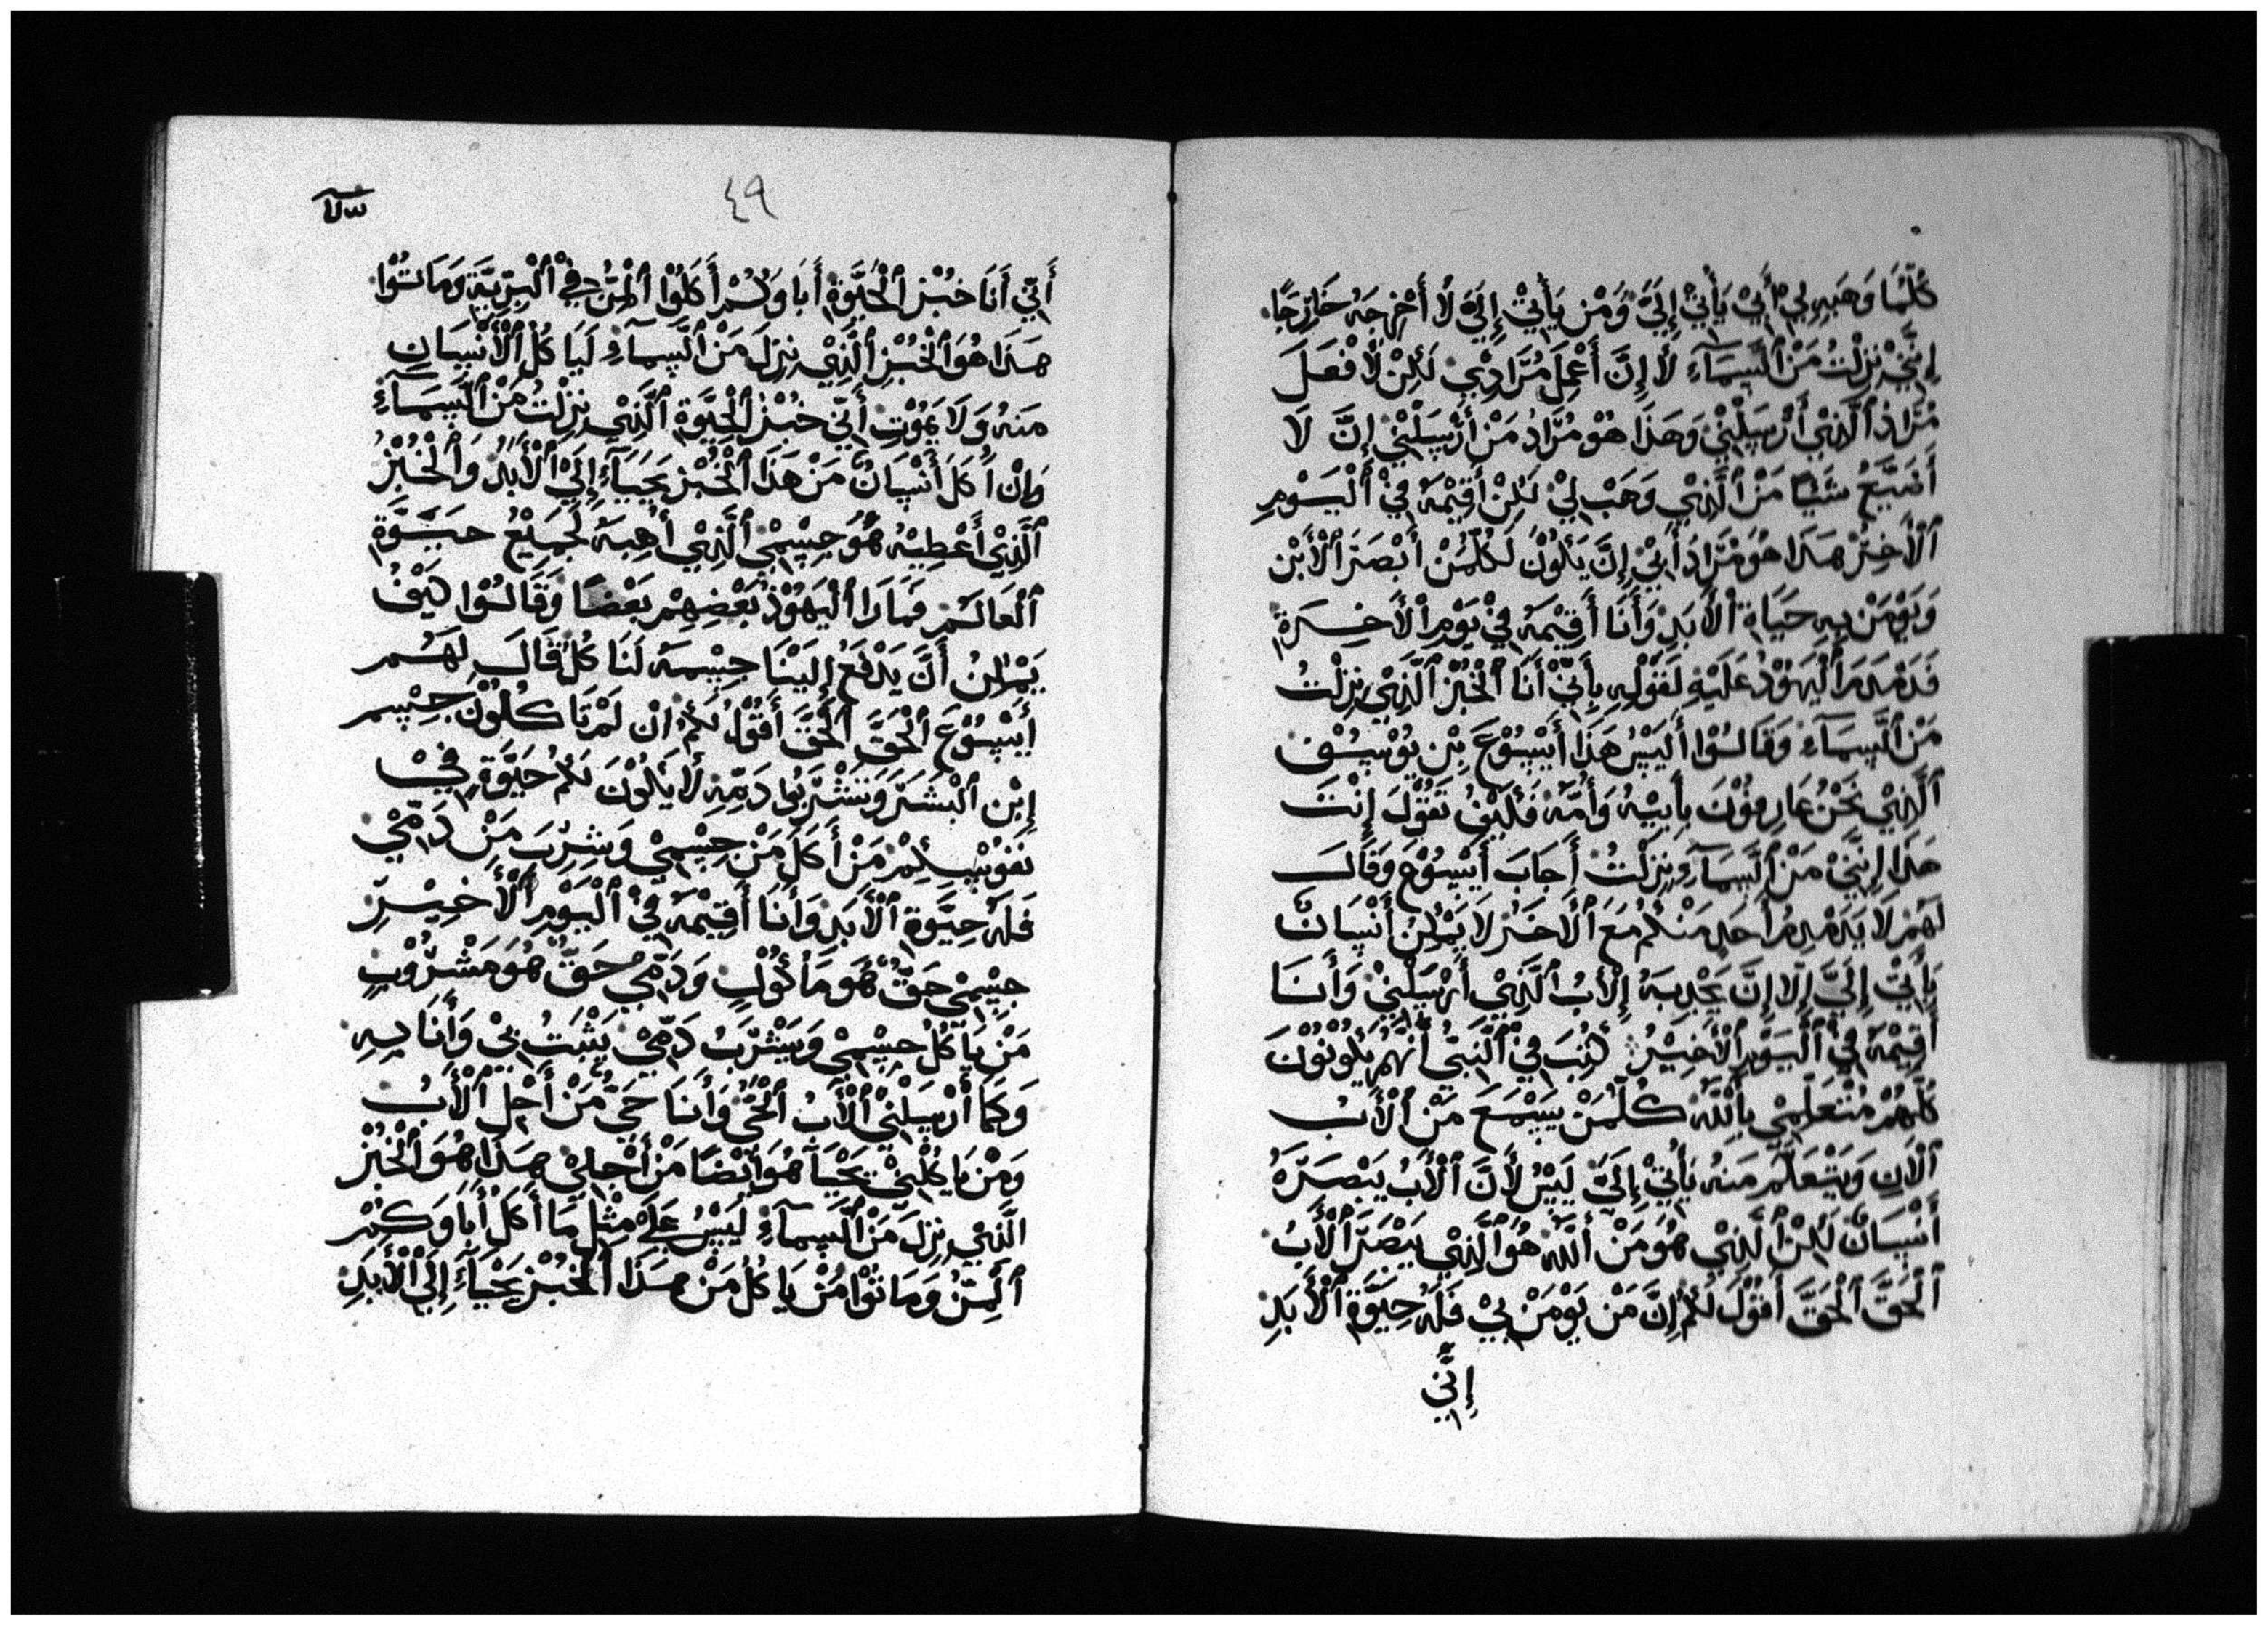 كُلَّمَا وَهَبِهِ لِيْ أَبِيْ يَأْتِيْ إِلَيَّ وَمْن يَأْتِيْ إِلَيَّ لَا أَخْرِجَهُ خَارِجًا
إِنَّنِيْ نِزِلْتُ مَنْ ٱلسَّمَآءِ لَا إِنَّ أَعْمِلَ مُرَادِيْ لَكِنْ لَافْعَلَ
مُرَادُ ٱلَّذِيْ أَرْسَلْنِيْ وَهَذَا هُوْ مُرَادُ مَنْ أَرْسَلْنِيْ إِنَّ لَا
أَضَيِّعُ شَيْئاً مَنْ ٱلَّذِيْ وَهَبْ لِيْ لَكِنْ أَقِيْمَهُ فِيْ ٱلْيَوْمِ
ٱلْأَخِرْ هَذَا هُوَ مُرَادَ أَبِيْ إِنَّ يَكُوْنُ لَكُلِّمَنْ أَبْصَرَ ٱلْأَبْن
وَيَوْمَنْ بِهِ حَيَاةِ ٱلْأَبَدِ وَأَنَا أَقِيْمَهُ فِيْ يَوْمِ ٱلْأَخِرَةِ
فَدَمْدَمَ ٱلْيَهُوْدُ عَلَيْهِ لَقَوْلِهِ بِأَنِّيْ أَنَا ٱلْخُبْزْ ٱلَّذِيْ نِزِلْتُ
مَنْ ٱلسَّمَآءِ وَقَالُوْا أَلَيْسُ هَذَا أَيْسُوْعَ بِنْ يُوْسِفْ
ٱلَّذِيْ نَحْنُ عَارِفُوْنَ بِأَبِيْهُ وَأُمَّهُ فَكَيْفُ تَقُوْلَ إِنْتَ
هَذَا إِنَّنِيْ مَنْ ٱلسَّمَآءِ نِزِلْتُ أَجَابَ أَيْسُوْعَ وَقَالَ
لَهَمْ لَا يَدَمْدِمُ أَحَدِ مَنْكُمْ مَعَ ٱلْأَخَرْ لَا يَمْكِنُ أَنْسَانٌ
يَأْتِيْ إِلَيَّ إِلَّا إِنَّ يَجْذِبَهُ إِلْأَبُ ٱلَّذِيْ أَرْسَلْنِيْ وَأَنَا
أَقِيْمَهُ فِيْ ٱلْيَوْمِ ٱلْأَخِيْرُ كُتِبَ فِيْ ٱلنَّبِيْ أَنَّهُمْ يَكُوْنُوْنَ
كُلَّهُمْ مُتْعَلِّمِيْ بِٱللّٰهُ كُلَّمَنْ يَسْمَعَ مَنْ ٱلْأَبُ
ٱلْأَنِ وَيَتْعَلَّمَ مَنهُ يَأْتِيْ إِلَيَّ لَيْسُ لَأَنَّ ٱلْأَبُ يَبْصَرَهُ
أَنْسَانٌ لَكِنْ ٱلَّذِيْ هُوَ مَنْ ٱللّٰهُ هُوَ ٱلَّذِيْ يَبْصَرَ ٱلْأَبُ
ٱلْحَقَّ ٱلْحَقَّ أَقُوْلَ لَكُمْ إِنَّ مَنْ يَوْمَنْ بِيْ فَلَهُ حِيَوَةِ ٱلْأَبَدِ
إِنِّي
٤٩
أَنِّيْ أَنَا خُبْز ٱلْحَيَوةِ أَبَاوَكُمْ أَكَلُوْا ٱلْمَنُّ فِيْ ٱلْبَرِيَّةِ وَمَاتُوْا
هَذَا هُوَ ٱلْخُبْزِ ٱلَّذِيْ نِزِلَ مَنْ ٱلسَّمَآءِ لَيَاكُلْ ٱلْأَنْسَانِ
مَنهُ وَلَا يَمُوْتِ أَنِّيْ خُبْزُ ٱلْحَيَوةِ ٱلَّذِيْ نِزِلْتُ مَنْ ٱلسَّمَآءِ
وَإِنْ أَكَلَ أَنْسَانٌ مَنْ هَذَا ٱلْخُبْزْ يَحْيَآءِ إِلَىْ ٱلْأَبَدُ وَٱلْخُبْزُ
ٱلَّذِيْ أَعْطِيْهُ هُوَ جِسْمِيْ ٱلَّذِيْ أَهِبَهُ لَجَمِيْعُ حَيَوَةِ
ٱلْعَالَمْ فَمَارَا ٱلْيَهُوْدُ بَعْضِهِمْ بَعْضًا وَقَالُوْا كَيْفُ
يَمْكِنُ أَنَّ يَدْفَعَ إِلَيْنَا جِسْمهُ لَنَا كُلْ قَالَ لَهُمْ
أَيْسُوْعَ ٱلْحَقَّ ٱلْحَقَّ أَقُوْلُ لَكُمْ إِنْ لَمْ تَاكُلُوْنَ جِسْم
إِبْن ٱلْبَشَرَ وَتَشْرَبُوا دَمِّهِ لَا يَكُوْنَ لَكُمْ حَيَوَةِ فِيْ
نَفُوْسِكُمْ مَنْ أَكَلَ مَنْ جِسْمِيْ وَشِرَبَ مَنْ دَمِّيْ
فَلَهُ حِيَوَةِ ٱلْأَبَدِ وَأَنَا أَقِيْمَهُ فِيْ ٱلْيَوْمِ ٱلْأَخِيْرِ
جِسْمِيْ حَقٌّ هُوَ مَأْكُوْلٍ وَدَمِّيْ حَقٌّ هُوَ مَشْرُوْبٍ
مَنْ يَاكُلُ جِسْمِيْ وَيَشْرَبُ دَمِّيْ يَثْبَتُ بِيْ وَأَنَا بِهِ
وَكَمَا أَرْسَلْنِيْ ٱلْأَبُ ٱلْحَيُّ وَأَنَا حَيٌّ مَنْ أَجْلِ ٱلْأَبُ
وَمَنْ يَاكُلْنِيْ يَحْيَآ هُوَ أَيْضًا مَنْ أَجْلِيْ هَذَا هُوَ ٱلْخُبْزُ
ٱلَّذِيْ نِزِلَ مَنْ ٱلسَّمَآءِ لَيْسُ عَلَىْ مِثِلْ مَا أَكَلْ أَبَاوَكُمْ
ٱلْمَنُّ وَمَاتُوْا مَنْ يَاكُلْ مَنْ هَذَا ٱلْخُبْزْ يَحْيَآءَ إِلَىْ ٱلْأَبَدِ